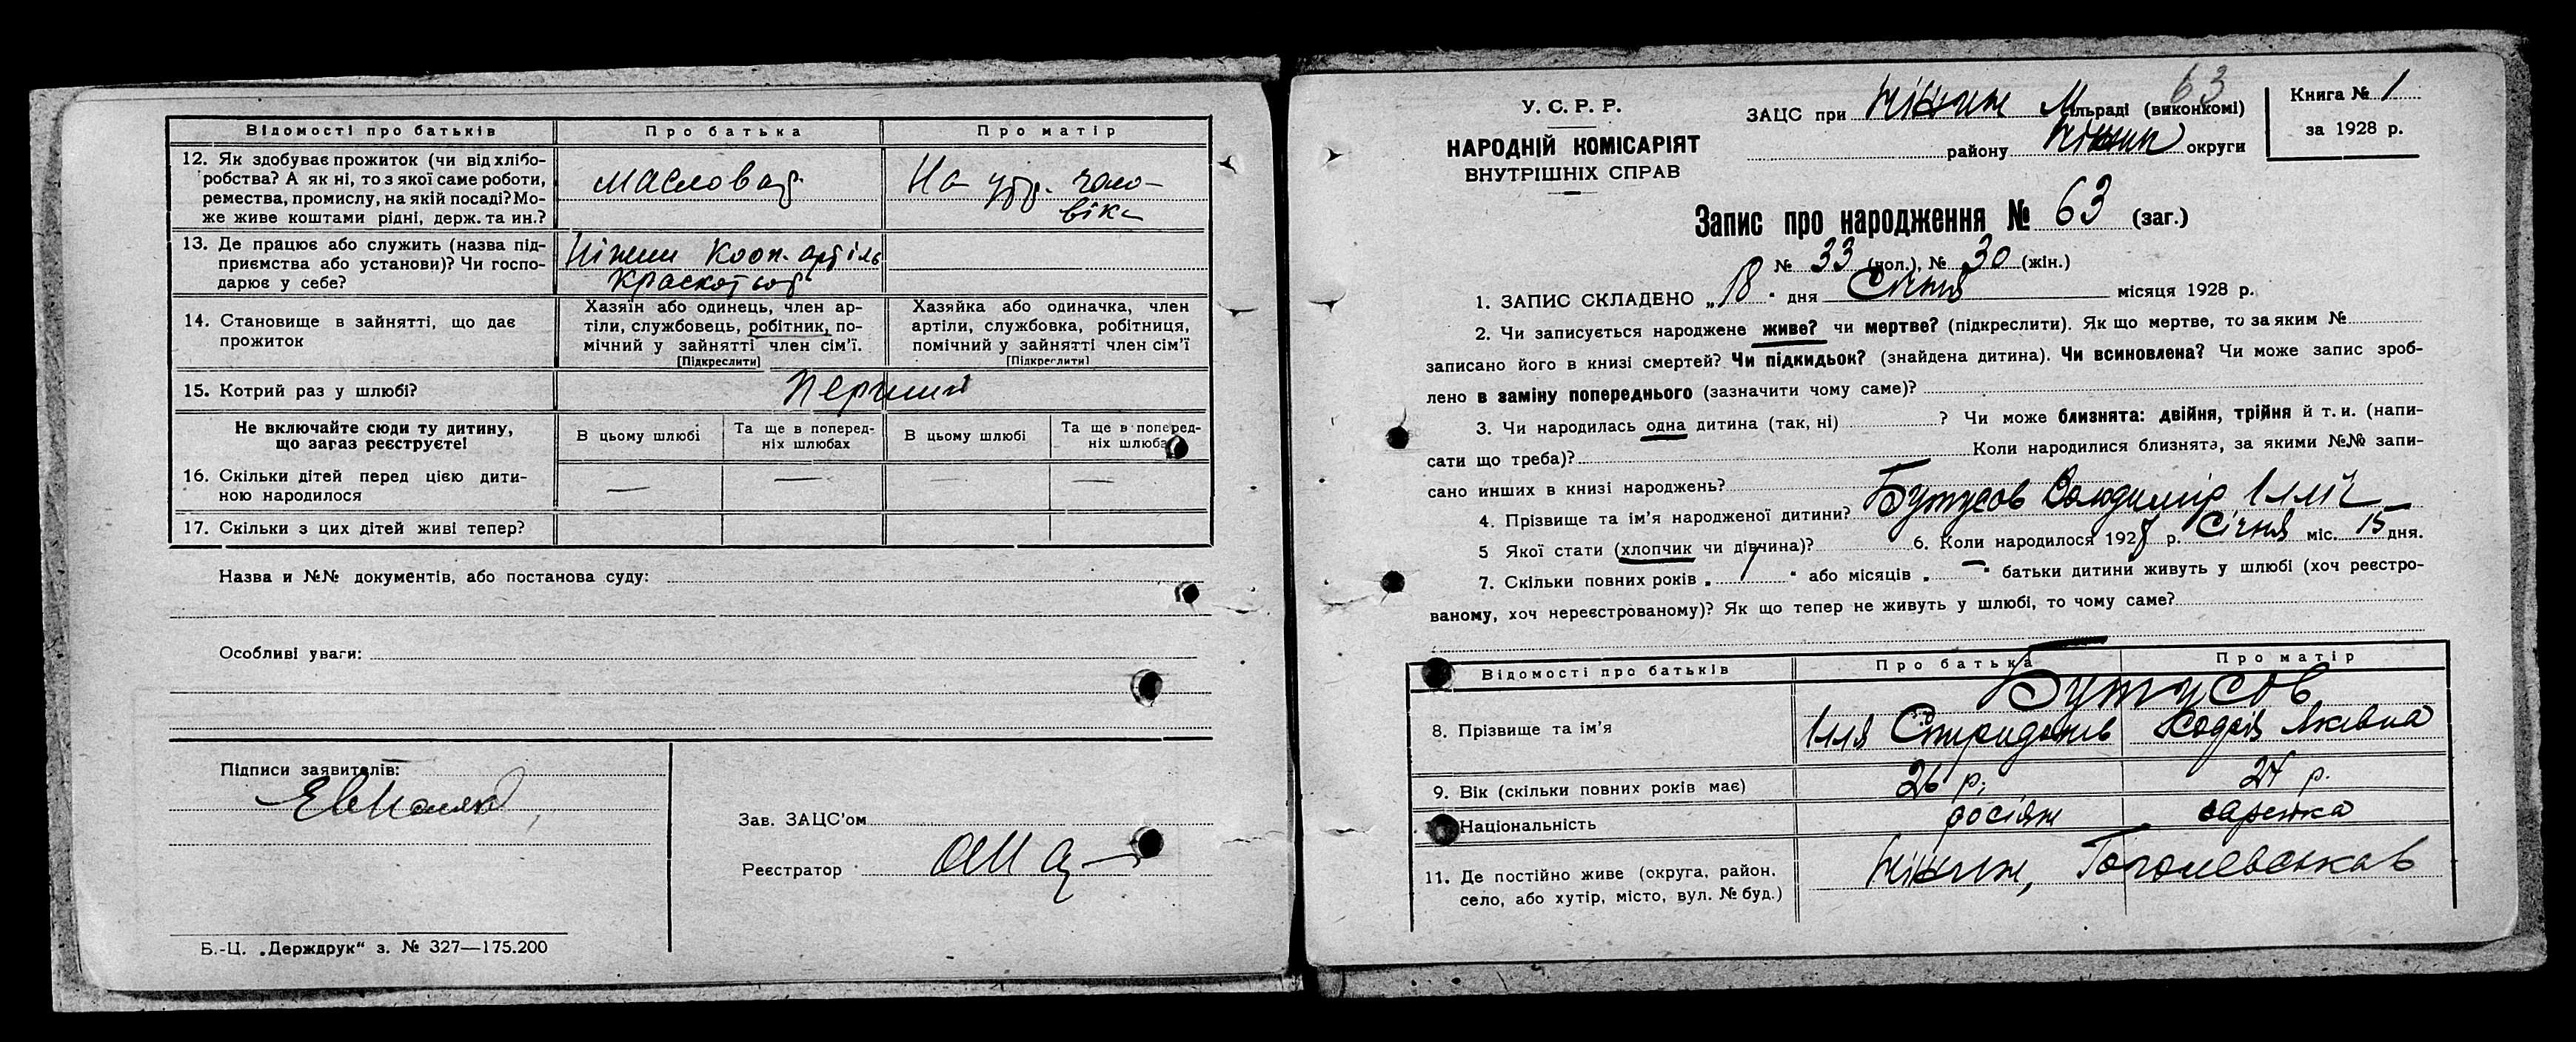 Відомості про батьків Про батька Про матір
12. Як здобуває прожиток (чи від хлібо-
робства? А як ні, то з якої саме роботи,
ремества, промислу, на якій посаді? Мо-
же живе коштами рідні, держ. та ин.?
На утр. чоло-
віка
13. Де працює або служить (назва під-
приємства або установи)? Чи госпо-
дарює у себе?
Ніжин Кооп. артіль
14. Становище в зайнятті, що дає
прожиток
Хазяїн або одинець, член ар-
тіли, службовець, робітник, по-
мічний у зайнятті член сім'ї.
[Підкреслити]
Хазяйка або одиначка, член
артіли, службовка, робітниця,
помічний у зайнятті член сім'ї
[Підкреслити]
15. Котрий раз у шлюбі? Перший
Не включайте сюди ту дитину,
що загаз реєструєте!
В цьому шлюбі
Та ще в поперед-
ніх шлюбах
В цьому шлюбі
Та ще в поперед-
ніх шлюбах
16. Скільки дітей перед цією дити-
ною народилося
— — — —
17. Скільки з цих дітей живі тепер?
Назва и №№ документів, або постанова суду:
Особливі уваги:
Підписи заявителів:
Зав. ЗАЦС'ом
Реєстратор
Б.-Ц. „Держдрук“ з. № 327—175.200
63
У. С. Р. Р.
НАРОДНІЙ КОМІСАРІЯТ
ВНУТРІШНІХ СПРАВ
ЗАЦС при Ніжин М сільраді (виконкомі)
району Ніжин округи
Книга № 1
за 1928 р.
Запис про народження № 63 (заг.)
№ 33 (чол.), № 30 (жін.)
1. ЗАПИС СКЛАДЕНО „18“ дня Січня місяця 1928 р.
2. Чи записується народжене живе? чи мертве? (підкреслити). Як що мертве, то за яким №
записано його в книзі смертей? Чи підкидьок? (знайдена дитина). Чи всиновлена? Чи може запис зроб-
лено в заміну попереднього (зазначити чому саме)?
3. Чи народилась одна дитина (так, ні) ? Чи може близнята: двійня, трійня й т. и. (напи-
сати що треба)? Коли народилися близнята, за якими №№ запи-
сано инших в книзі народжень?
4. Прізвище та ім'я народженої дитини? Бутусов Володимир Ілліч
5 Якої стати (хлопчик чи дівчина)? 6. Коли народилося 1928 р. Січня міс. 15 дня.
7. Скільки повних років „ 1 “ або місяців „ — “ батьки дитини живуть у шлюбі (хоч реєстро-
ваному, хоч нереєстрованому)? Як що тепер не живуть у шлюбі, то чому саме?
Відомості про батьків Про батька Про матір
Бутусов
8. Прізвище та ім'я Ілля Спиридонів Софія Яківна
9. Вік (скільки повних років має) 26 р. 27 р.
Національність росіян
11. Де постійно живе (округа, район,
село, або хутір, місто, вул. № буд.)
Ніжин,